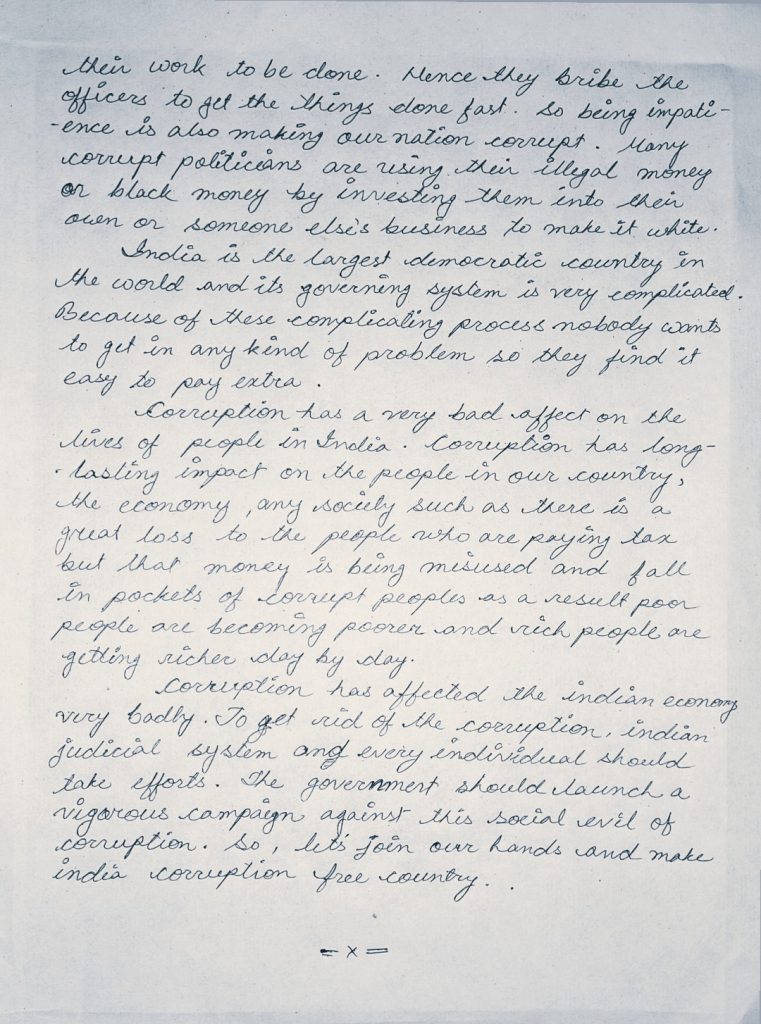 their work to be done. Hence they bribe the
officers to get the things done fast. So being impati-
-ence is also making our nation corrupt. Many
corrupt politicians are using their illegal money
or black money by investing them into their
own or someone else's business to make it white.
India is the largest democratic country in
the world and its governing system is very complicated.
Because of these complicating process nobody wants
to get in any kind of problem so they find it
easy to pay extra.
Corruption has a very bad affect on the
lives of people in India. Corruption has long-
-lasting impact on the people in our country,
the economy, any society such as there is a
great loss to the people who are paying tax
but that money is being misused and fall
in pockets of corrupt peoples as a result poor
people are becoming poorer and rich people are
getting richer day by day.
Corruption has affected the indian economy
very badly. To get rid of the corruption, indian
judicial system and every individual should
take efforts. The government should launch a
vigorous campaign against this social evil of
corruption. So, let's join our hands and make
india corruption free country.
= x =